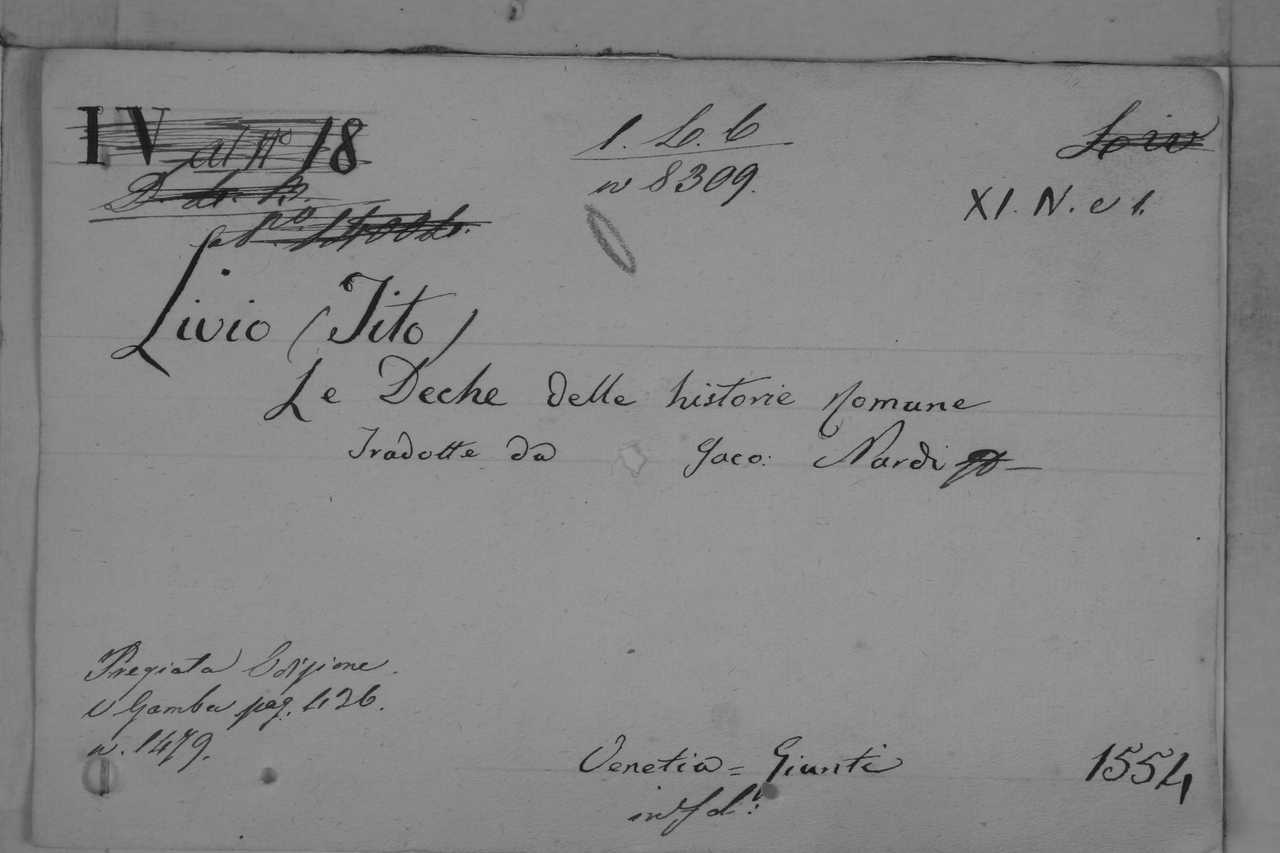 IV al N° 18
1. L. 6
n 8309.
XI. N. e 1.
Livio (Tito)
Le Deche delle historie Romane
Tradotte da Jaco: Nardi
Pregiata Edizione.
V Gamba pag. 426.
n. 1479.
Venetia = Giunti 1554
in f d.°: